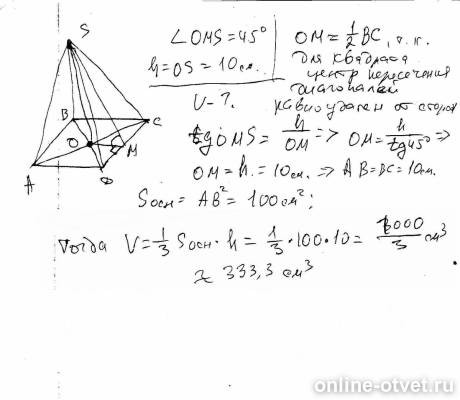 S
B
C
O
M
A
D
∠OMS = 45°
h = OS = 10 см.
V - ?
OM = 1/2 BC, т.к.
для квадрата
центр пересечения
диагоналей
равноудален от сторон
tg OMS = h/OM => OM = h/tg45° =>
OM = h = 10 см. => AB = BC = 10 см.
Sосн = AB² = 100 см²;
Тогда V = 1/3 Sосн · h = 1/3 · 100 · 10 = 1000/3 см³
≈ 333,3 см³
online-otvet.ru